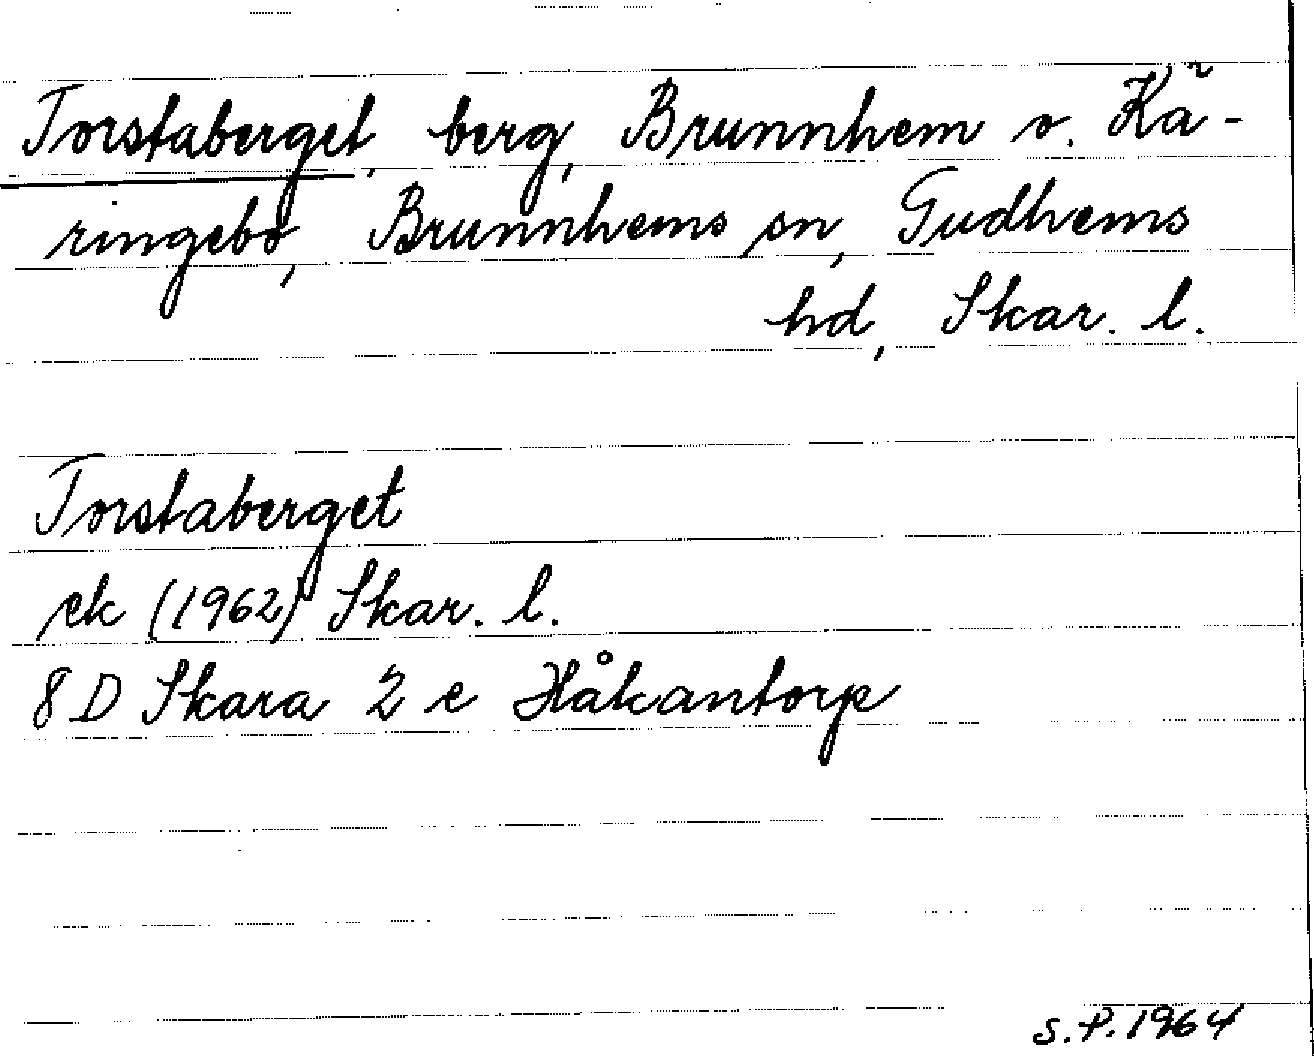 Torstaberget, berg, Brunnhem v. Kä-
ringebo, Brunnhems sn, Gudhems
hd, Skar. l.
Torstaberget
ek (1962) Skar. l.
8 D Skara 2 e Håkantorp
S.P. 1964